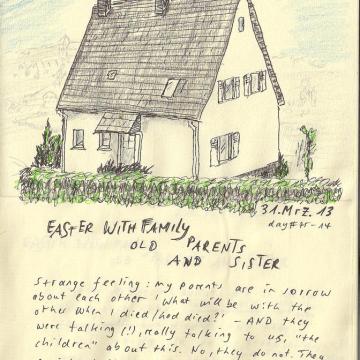 31. Mrz. 13
day
EASTER WITH FAMILY
OLD PARENTS
AND SISTER
Strange feeling: my parents are in sorrow
about each other! What will be with the
other when I died/had died?' - AND they
were talking (!), really talking to us, "the
children" about this. No, they do not. They